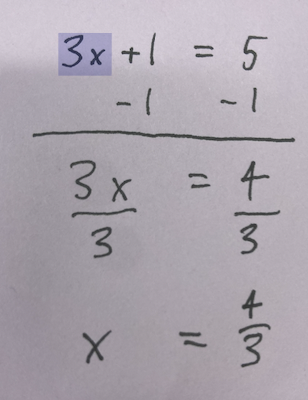 3x + 1 = 5
- 1 - 1
3x/3 = 4/3
x = 4/3